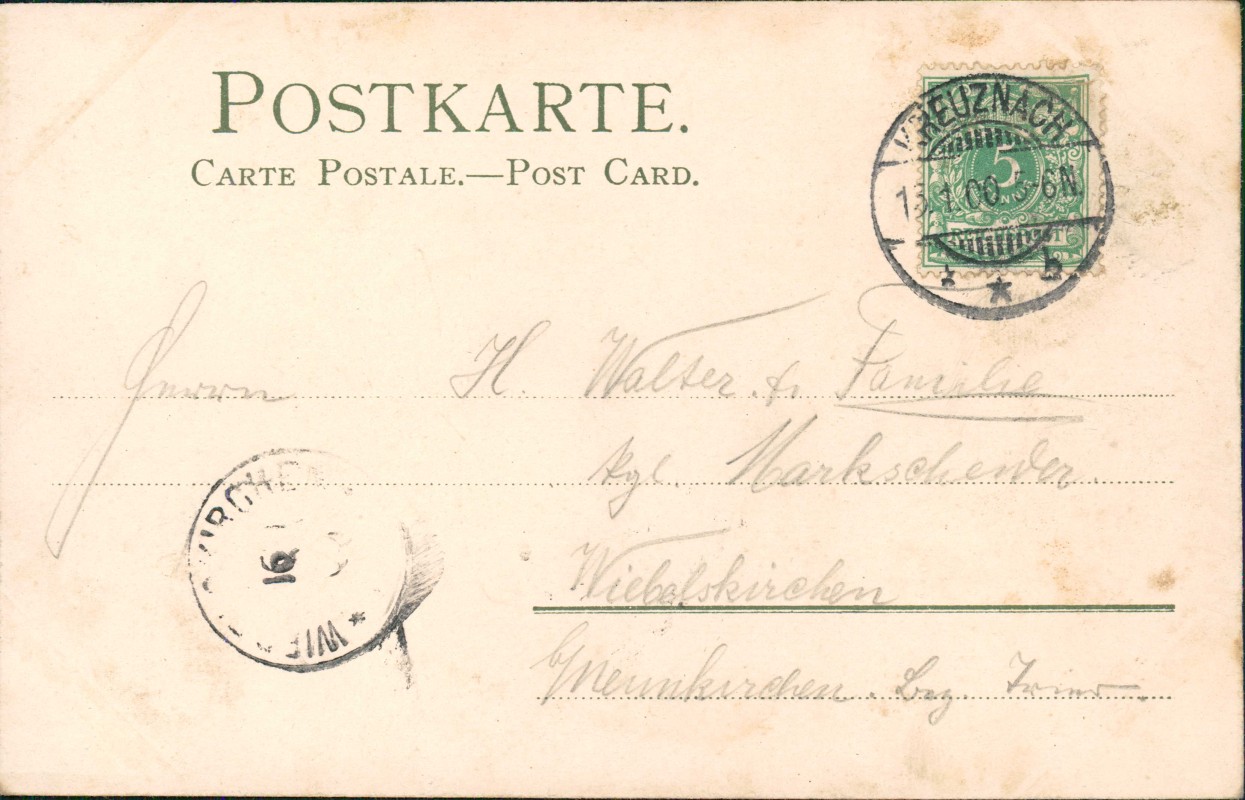 POSTKARTE.
CARTE POSTALE.—POST CARD.
KREUZNACH
1.00 5-6N.
* b
5
Herrn H. Walter & Familie
Kgl Markscheider.
Wiebelskirchen
b/Neunkirchen. Bez Trier
KIRCHEN
16
* WIE